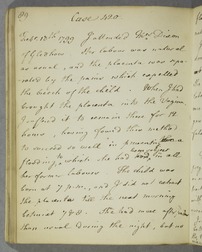 Case
Octr. 13th 1799 I attended Mrs Dixon
of Glashow. Her labour was natural
as usual, and the placenta was sepa-
rated by the pains which expelled
the breech of the child. When I had
brought the placenta into the Vagina
I suffered it to remain there for 12
hours, having found this method
to succeed so well in preventing
flooding to which she had been subject in all
her former labours. The child was
born at 7 p.m., and I did not extract
the placenta till the next morning
betwixt 7 & 8. She had more after pains
than usual during the night, but no